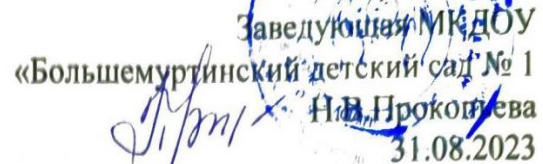 Заведующая МКДОУ
«Большемуртинский детский сад № 1
Н.В.Прокопьева
31.08.2023